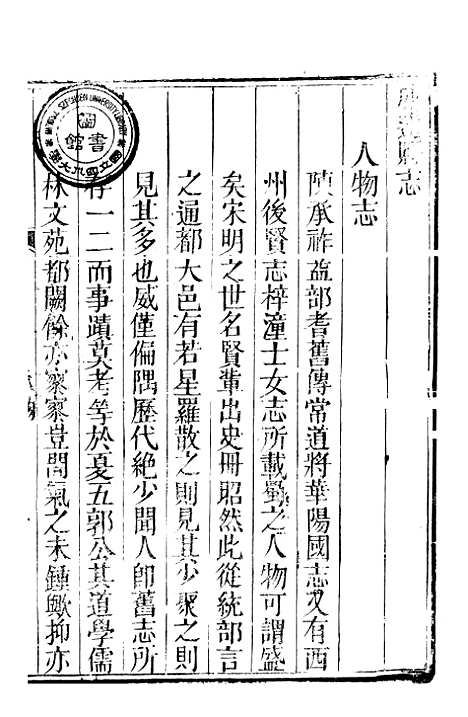 威遠縣志
人物志
陳承祚益部耆舊傳常道將華陽國志又有西
州後賢志梓潼士女志所載蜀之人物可謂盛
矣宋明之世名賢輩出史冊昭然此從統部言
之通都大邑有若星羅散之則見其少聚之則
見其多也威僅偏隅歷代絕少聞人即舊志所
存一二而事蹟莫考等於夏五郭公其道學儒
林文苑都闕餘亦寥寥豈間氣之未鍾歟抑亦
國立四川大學
圖書館
SZECHUEN UNIVERSITY LIBRARY